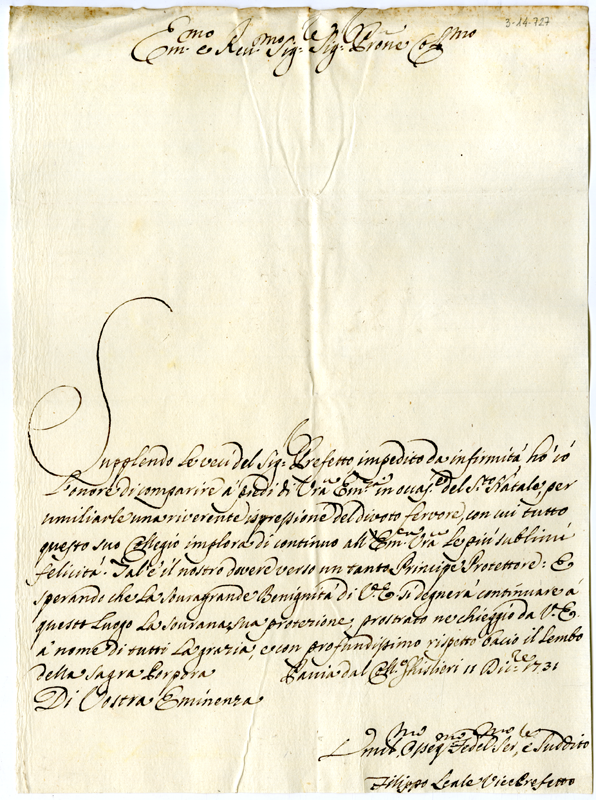 3-14-727
Em.mo e Reu.mo Sig.r Sig.r Prōne Col.mo
Supplendo le veci del Sig.r Prefetto impedito da infirmità hò cō
l'onore di comparire à piedi di Vrā Em.za in occas.e del S.to Natale, per
umiliarle una riverente espressione del divoto fervore, con cui tutto
questo suo Collegio implora di continuo all'Em.za Vrā le più sublimi
felicità. Tal'è il nostro dovere verso un tanto Principe Protettore: E
sperando che la souragrande Benignità di V.E. si degnerà continuare à
questo Luogo la sourana sua protezione, prostrato ne chieggio da V.E.
à nome di tutti la grazia, e con profundissimo rispetto bacio il lembo
della Sagra Porpora Pavia dal Coll.o Ghislieri 11 Dic.re 1731
Di Vostra Eminenza
Umil.mo Osseq.mo Fedel.mo Ser.re, e Suddito
Filippo Leale Vice Prefetto